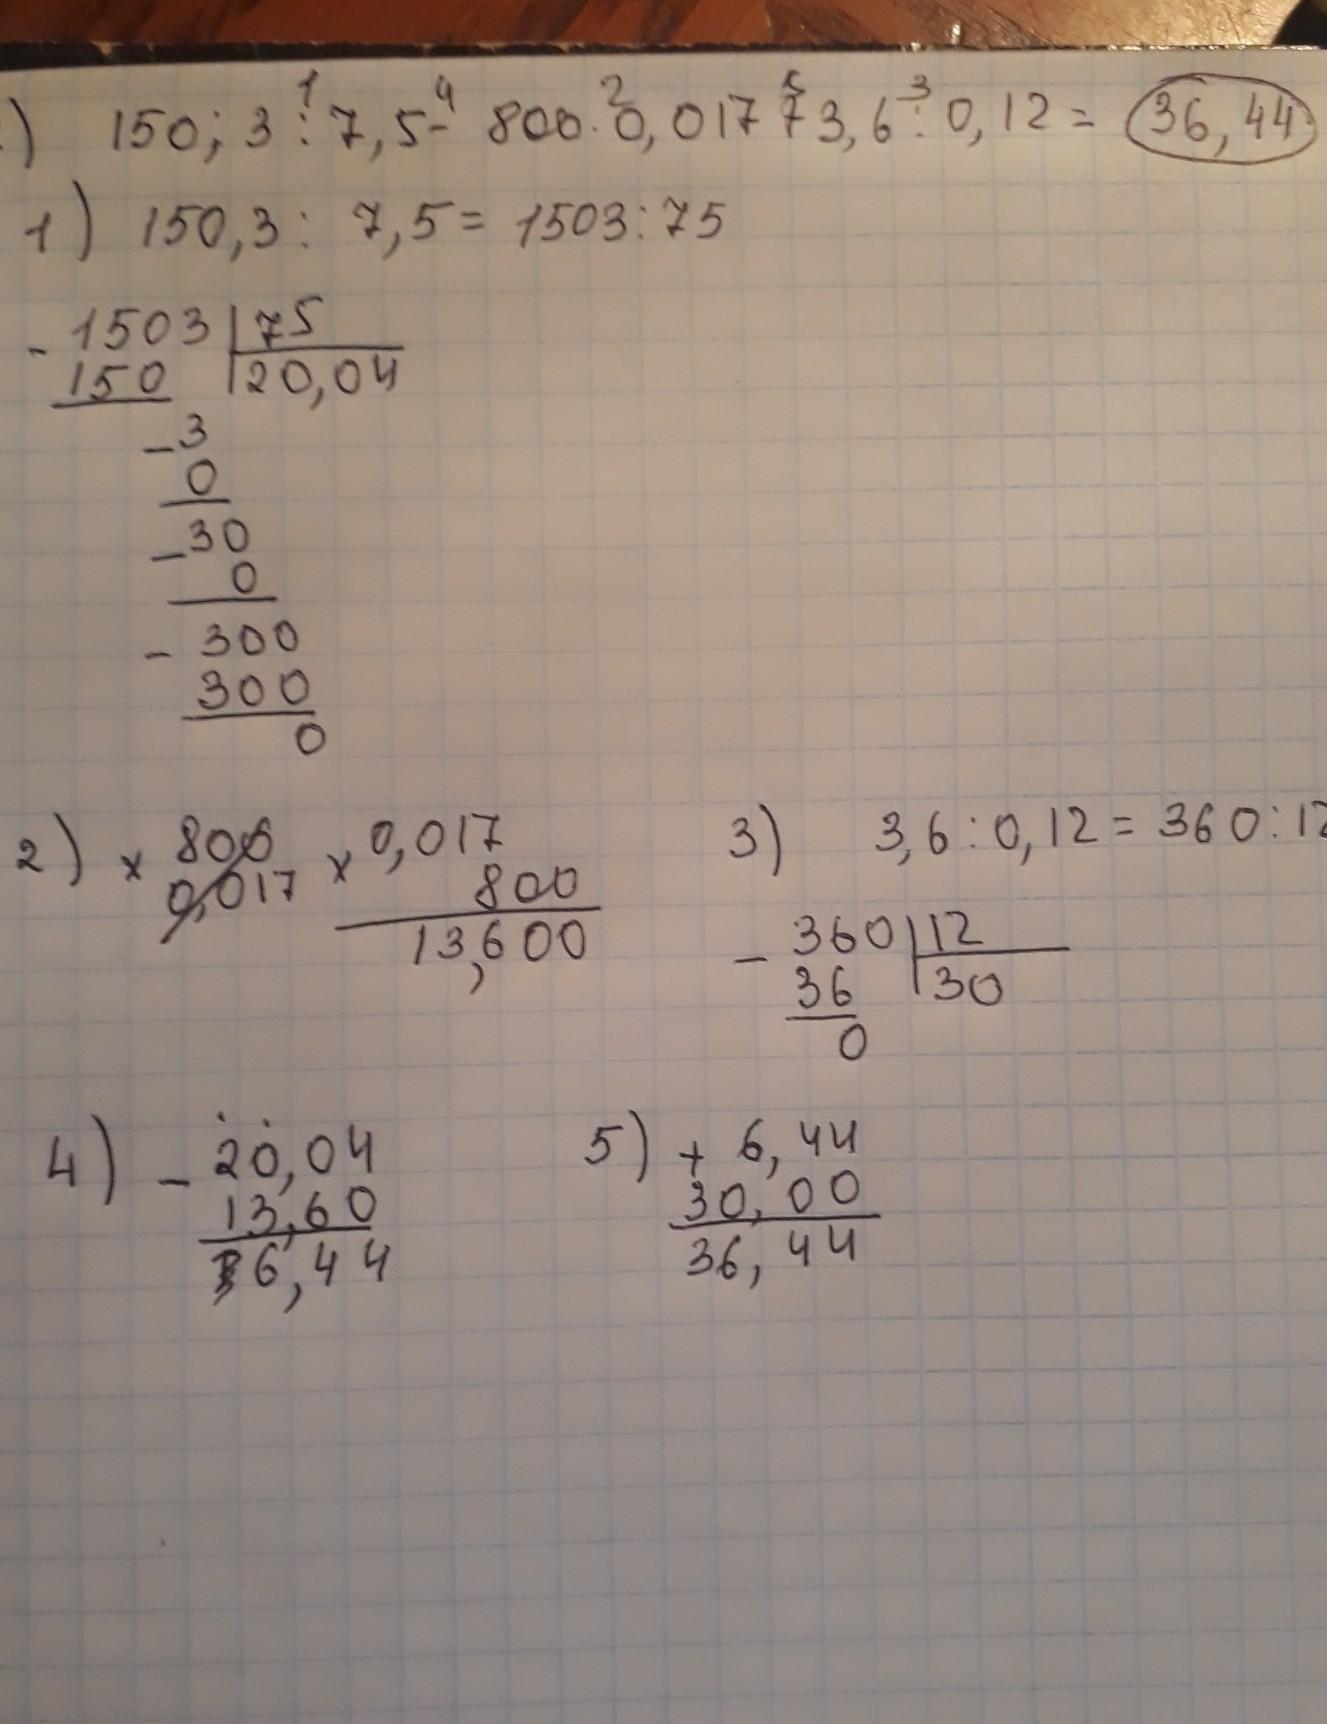 ) 150; 3 : 7,5 - 800 · 0,017 + 3,6 : 0,12 = 36,44
1 4 2 5 3
1) 150,3 : 7,5 = 1503:75
- 1503 | 75
150 20,04
- 3
0
- 30
0
- 300
300
0
2) × 800 × 0,017
0,017 800
13,600
3) 3,6 : 0,12 = 360:12
- 360 | 12
36 30
0
4) - 20,04
13,60
6,44
5) + 6,44
30,00
36,44